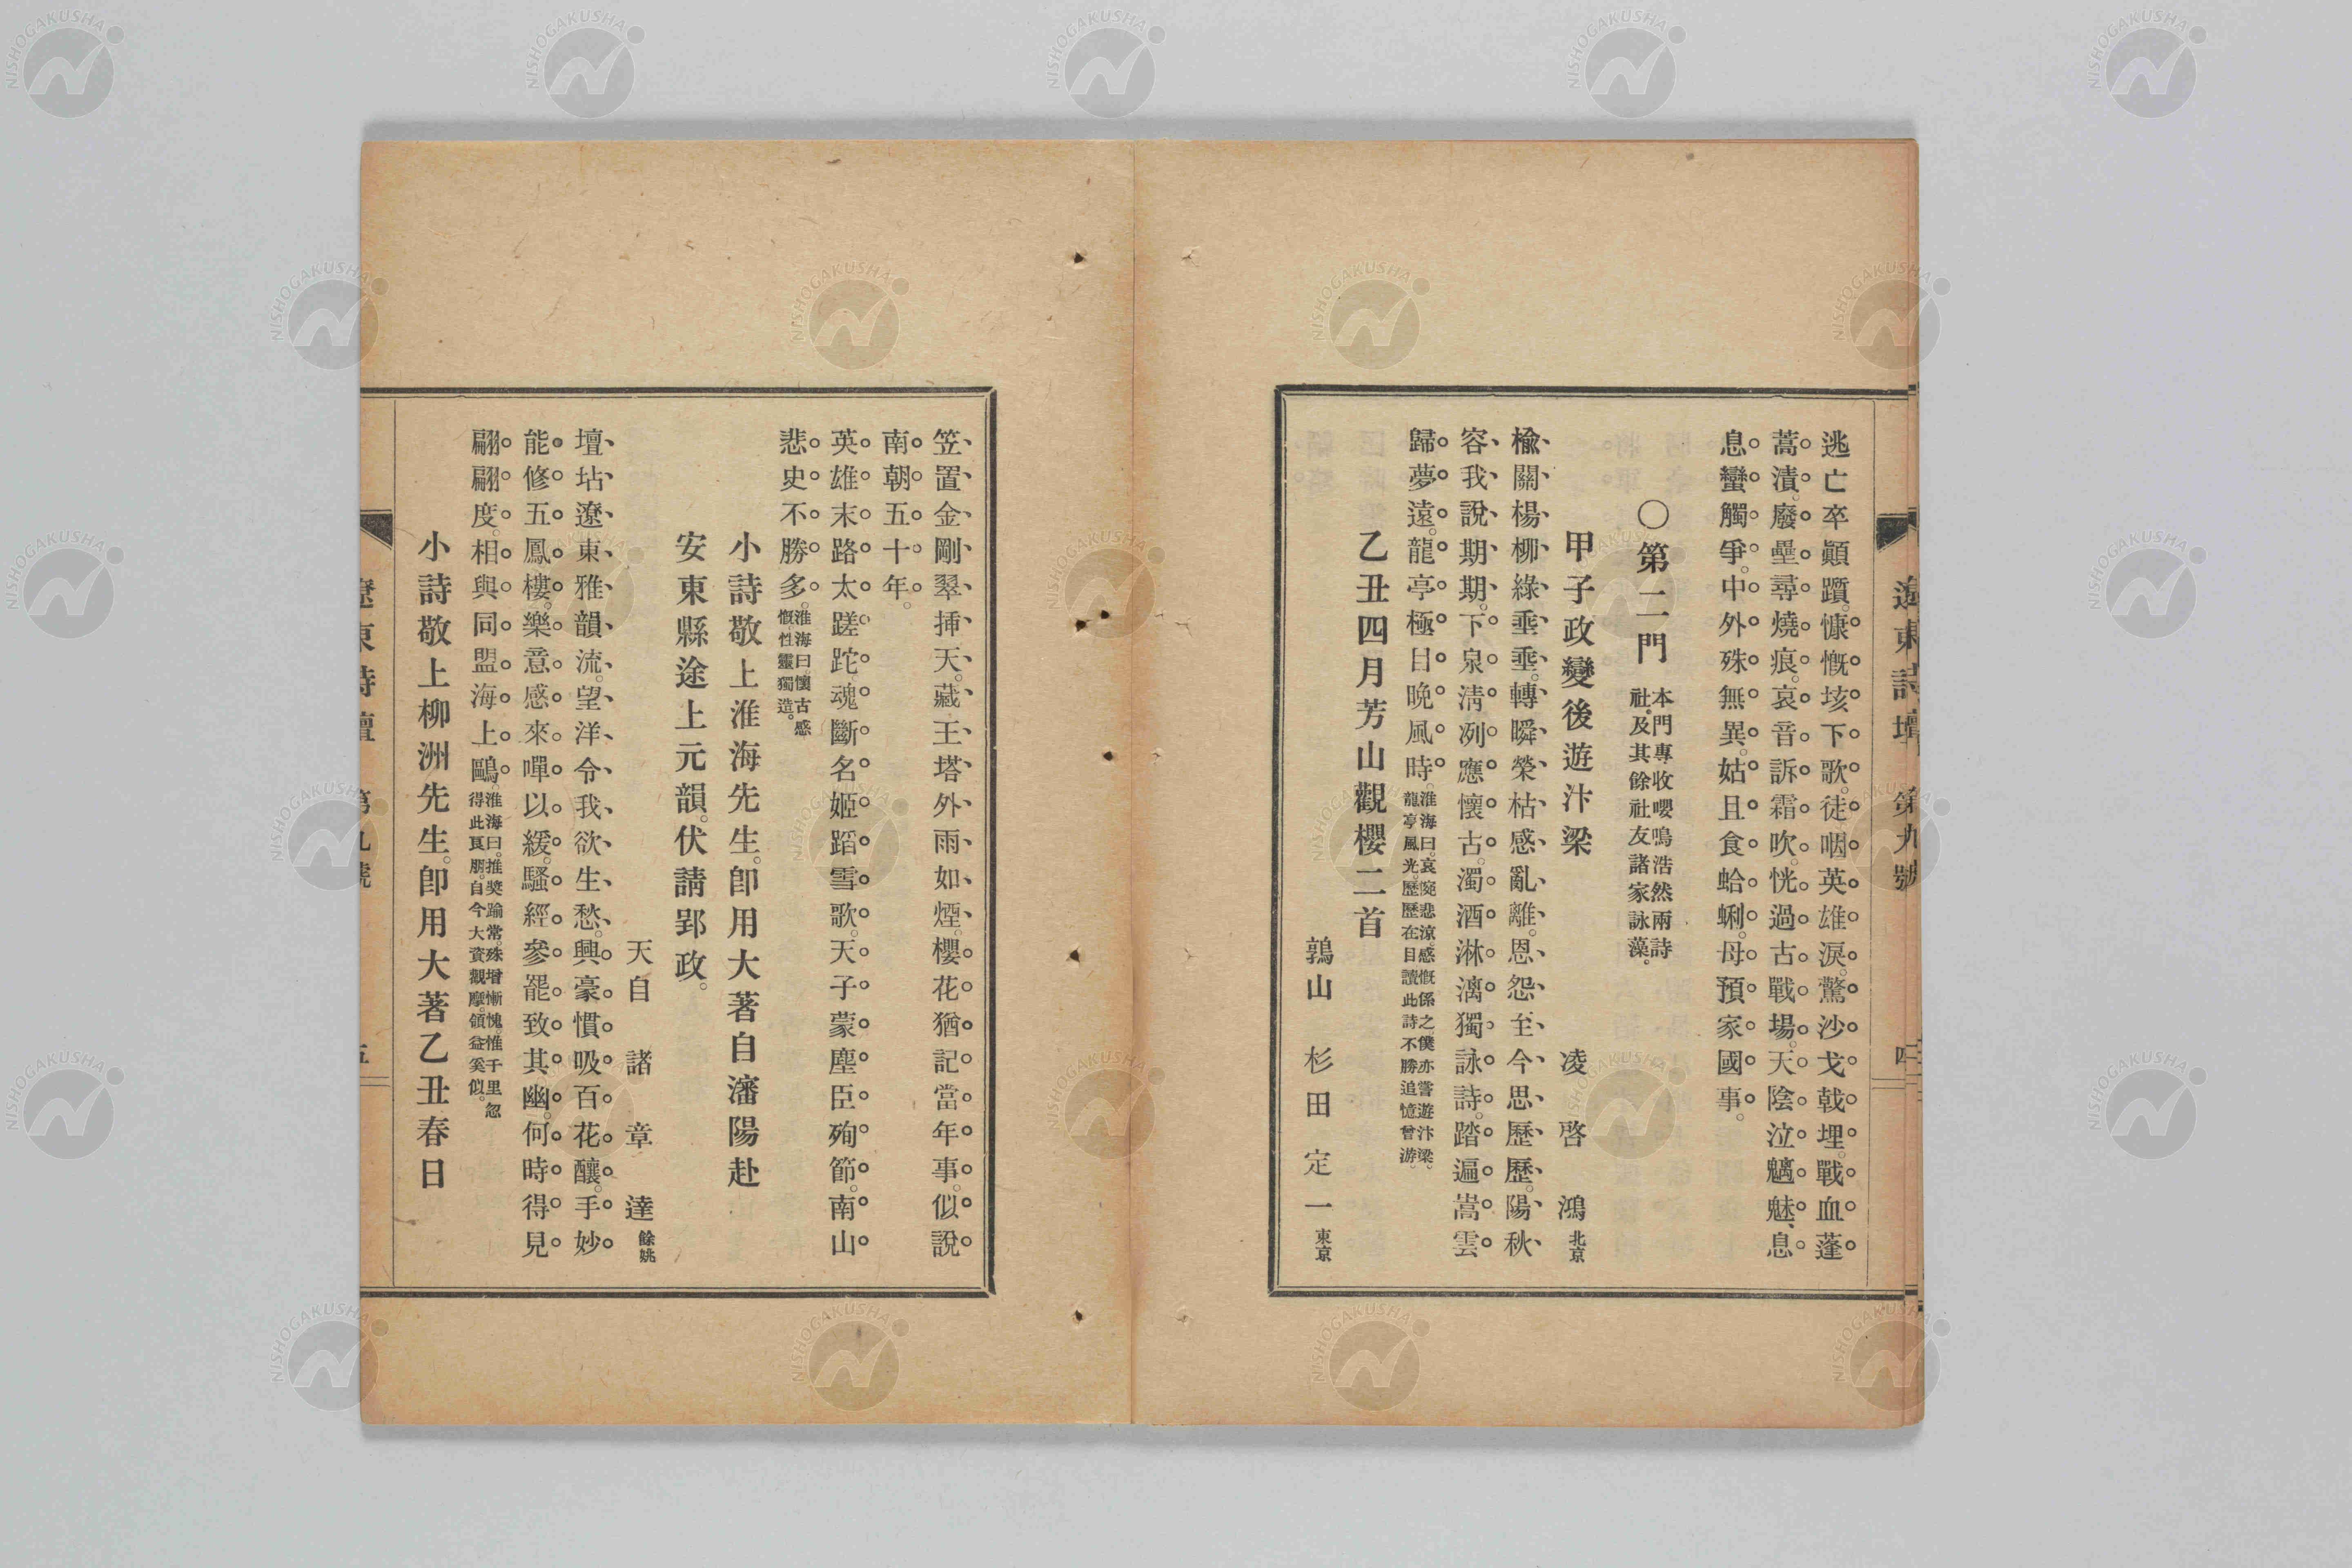 遼東詩壇 第九號 四
逃亡卒顚躓。慷慨垓下歌。徒咽英雄淚。驚沙戈戟埋。戰血蓬
蒿漬。廢壘尋燒痕。哀音訴霜吹。恍過古戰場。天陰泣魑魅。息
息蠻觸爭。中外殊無異。姑且食蛤蜊。毋預家國事。
〇第二門 本門專收嚶鳴浩然兩詩
社。及其餘社友諸家詠藻。
甲子政變後遊汴梁
凌啓鴻 北京
楡關楊柳綠垂垂。轉瞬榮枯感亂離。恩怨至今思歷歷。陽秋
容我說期期。下泉淸冽應懷古。濁酒淋漓獨詠詩。踏遍嵩雲
歸夢遠。龍亭極日晚風時。淮海曰。哀窕悲涼。感慨係之。僕亦嘗遊汴梁。
龍亭風光。歷歷在目讀此詩不勝追憶曾游。
乙丑四月芳山觀櫻二首
鶉山 杉田定一 東京
笠置金剛翠揷天。藏王塔外雨如煙。櫻花猶記當年事。似說
南朝五十年。
英雄末路太蹉跎。魂斷名姬蹈雪歌。天子蒙塵臣殉節。南山
悲史不勝多。淮海曰。懷古感
慨性靈獨造。
小詩敬上淮海先生。卽用大著自瀋陽赴
安東縣途上元韻。伏請郢政。
天自 諸章達 餘姚
壇坫遼東雅韻流。望洋令我欲生愁。興豪慣吸百花釀。手妙
能修五鳳樓。樂意感來嘽以緩。騷經參罷致其幽。何時得見
翩翩度。相與同盟海上鷗。淮海曰。推奬踰常。殊增慚愧。惟千里忽
得此良朋。自今大資觀摩。領益奚似。
小詩敬上柳洲先生。卽用大著乙丑春日
遼東詩壇 第九號 五
NISHOGAKUSHA